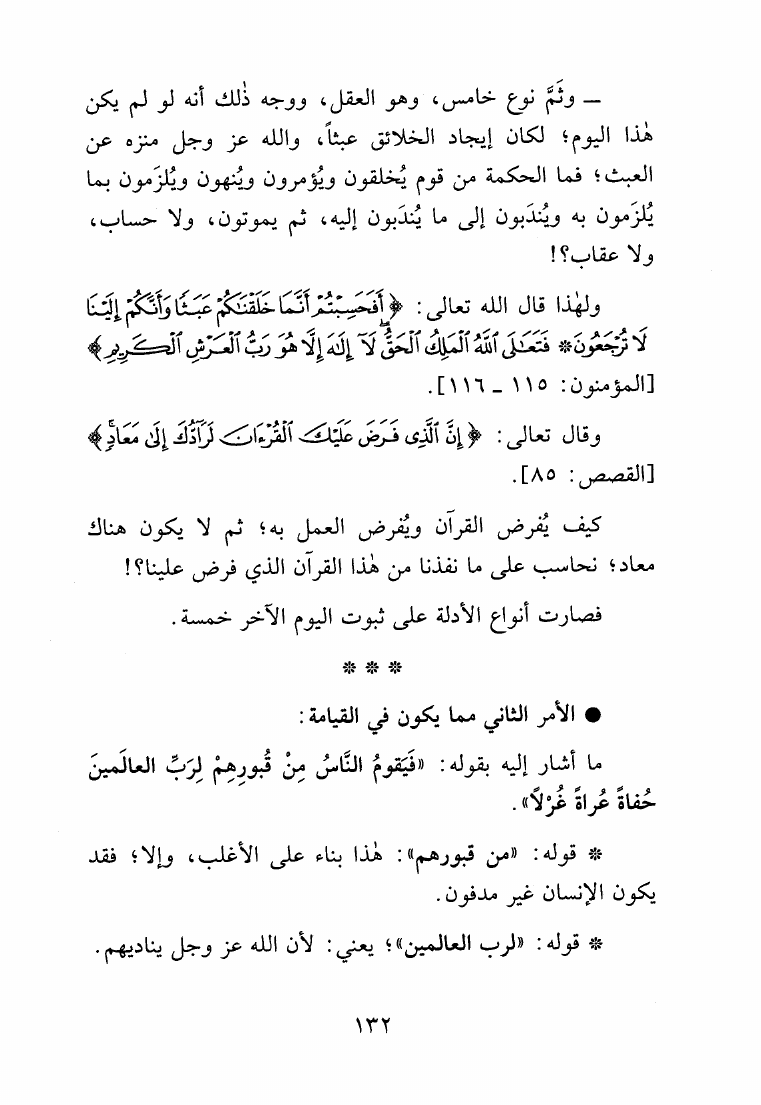 ـ وثَمَّ نوع خامس، وهو العقل، ووجه ذٰلك أنه لو لم يكن
هٰذا اليوم؛ لكان إيجاد الخلائق عبثاً، والله عز وجل منزه عن
العبث؛ فما الحكمة من قوم يُخلقون ويُؤمرون ويُنهون ويُلزَمون بما
يُلزَمون به ويُندَبون إلى ما يُندَبون إليه، ثم يموتون، ولا حساب،
ولا عقاب؟!
ولهٰذا قال الله تعالى: ﴿أَفَحَسِبْتُمْ أَنَّمَا خَلَقْنَٰكُمْ عَبَثًا وَأَنَّكُمْ إِلَيْنَا
لَا تُرْجَعُونَ * فَتَعَٰلَى ٱللَّهُ ٱلْمَلِكُ ٱلْحَقُّ ۖ لَآ إِلَٰهَ إِلَّا هُوَ رَبُّ ٱلْعَرْشِ ٱلْكَرِيمِ﴾
[المؤمنون: ١١٥ ـ ١١٦].
وقال تعالى: ﴿إِنَّ ٱلَّذِى فَرَضَ عَلَيْكَ ٱلْقُرْءَانَ لَرَآدُّكَ إِلَىٰ مَعَادٍ ۚ﴾
[القصص: ٨٥].
كيف يُفرض القرآن ويُفرض العمل به؛ ثم لا يكون هناك
معاد؛ نحاسب على ما نفذنا من هٰذا القرآن الذي فرض علينا؟!
فصارت أنواع الأدلة على ثبوت اليوم الآخر خمسة.
* * *
● الأمر الثاني مما يكون في القيامة:
ما أشار إليه بقوله: «فَيَقومُ النَّاسُ مِنْ قُبورِهِمْ لِرَبِّ العالَمينَ
حُفاةً عُراةً غُرْلاً».
* قوله: «من قبورهم»: هٰذا بناء على الأغلب، وإلا؛ فقد
يكون الإنسان غير مدفون.
* قوله: «لرب العالمين»؛ يعني: لأن الله عز وجل يناديهم.
١٣٢